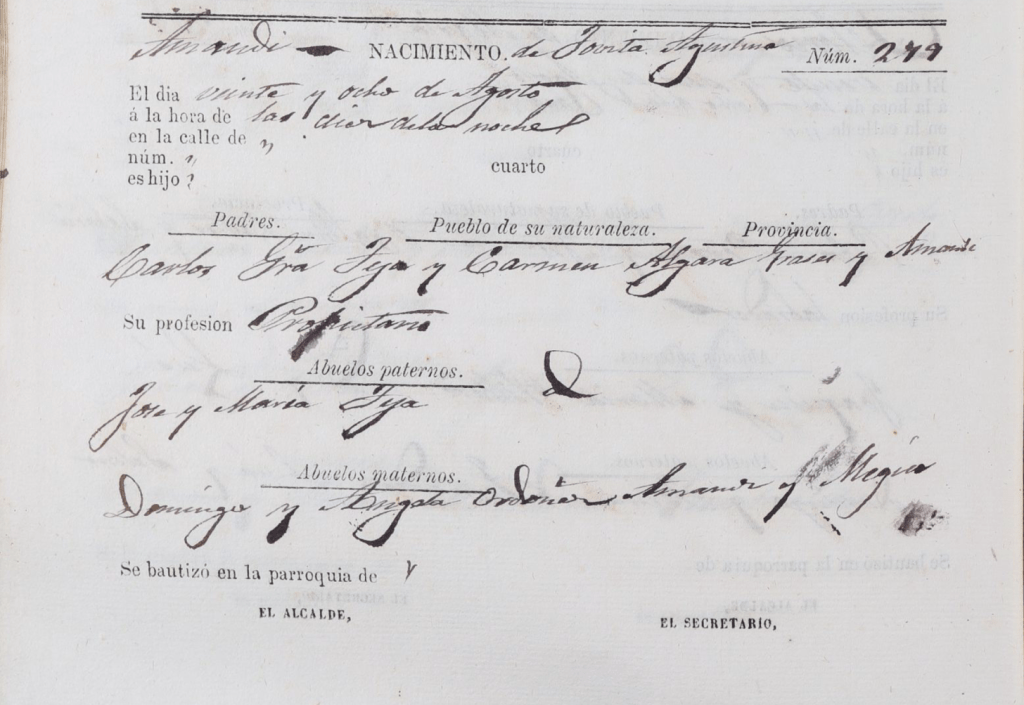 Amandi NACIMIENTO. de Jovita Agustina Núm. 279
El dia veinte y ocho de Agosto
á la hora de las diez de la noche
en la calle de "
núm. " cuarto
es hijo
Padres. Pueblo de su naturaleza. Provincia.
Carlos Gra Teja y Carmen Algara y Amandi
Su profesion Propietario
Abuelos paternos.
Jose y María Teja
Abuelos maternos.
Domingo y Brigida Ordoñez Amandi y Megia
Se bautizó en la parroquia de
EL ALCALDE, EL SECRETARIO,